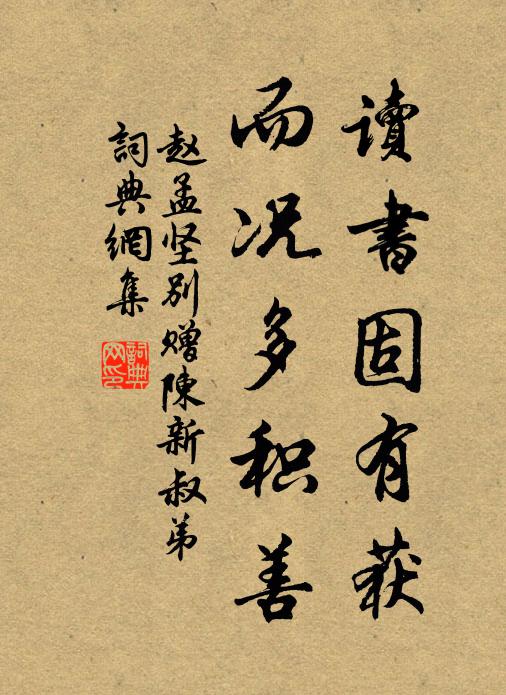 讀書固有获
而况多积善
赵孟坚别赠陳新叔弟
詞典網集
詞典网印